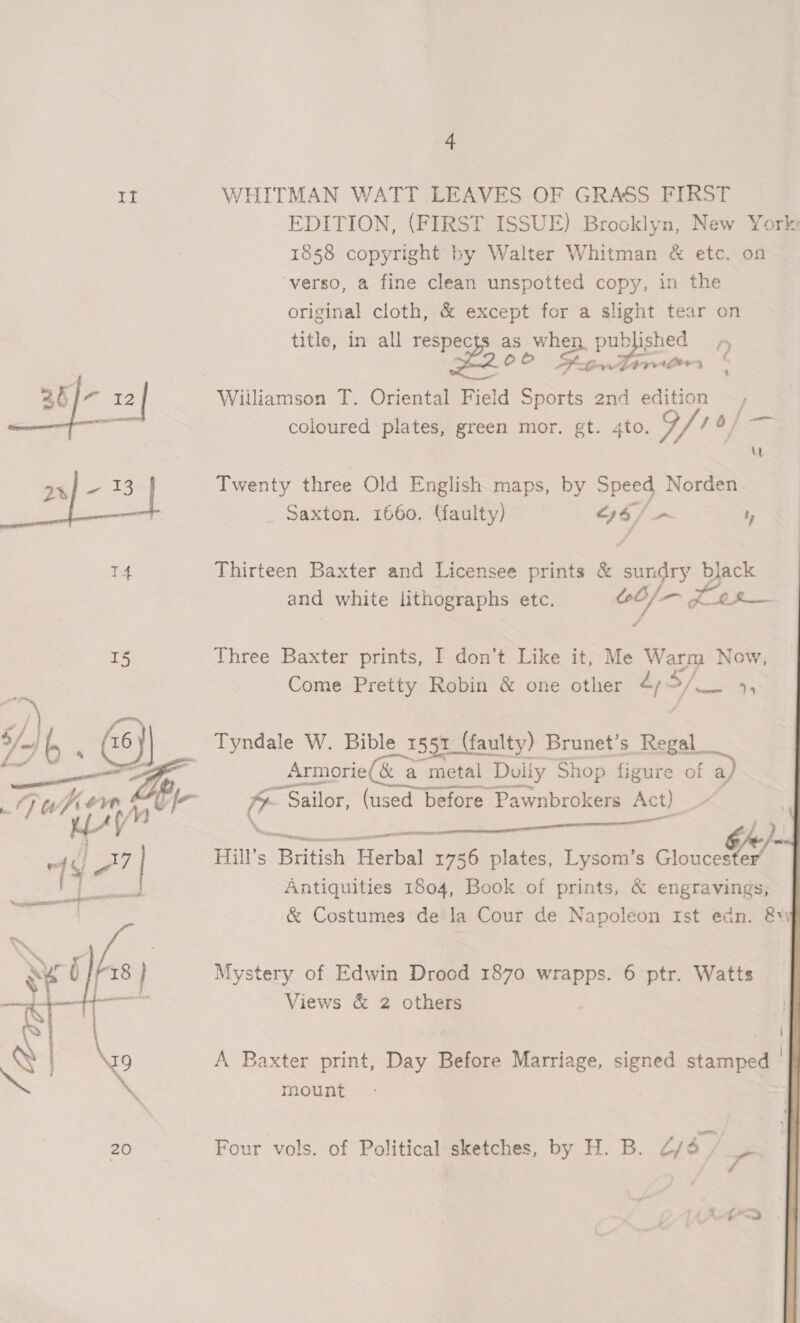 4
11 WHITMAN WATT LEAVES OF GRASS FIRST
EDITION, (FIRST ISSUE) Brooklyn, New York
1858 copyright by Walter Whitman & etc. on
verso, a fine clean unspotted copy, in the
original cloth, & except for a slight tear on
title, in all respects as when published
£200
36/- 12 Wiiliamson T. Oriental Field Sports 2nd edition
coloured plates, green mor. gt. 4to. 9/10/-
13 Twenty three Old English maps, by Speed Norden
Saxton. 1660. (faulty)
14 Thirteen Baxter and Licensee prints & sundry black
and white lithographs etc.
15 Three Baxter prints, I don't Like it, Me Warm Now,
Come Pretty Robin & one other
16 Tyndale W. Bible 1551 (faulty) Brunet's Regal
Armorie (& a metal Dolly Shop figure of a)
Sailor, (used before Pawnbrokers Act)
17 Hill's British Herbal 1756 plates, Lysom's Gloucester
Antiquities 1804, Book of prints, & engravings,
& Costumes de la Cour de Napoleon 1st edn.
18 Mystery of Edwin Drood 1870 wrapps. 6 ptr. Watts
Views & 2 others
19 A Baxter print, Day Before Marriage, signed stamped
mount
20 Four vols. of Political sketches, by H. B.